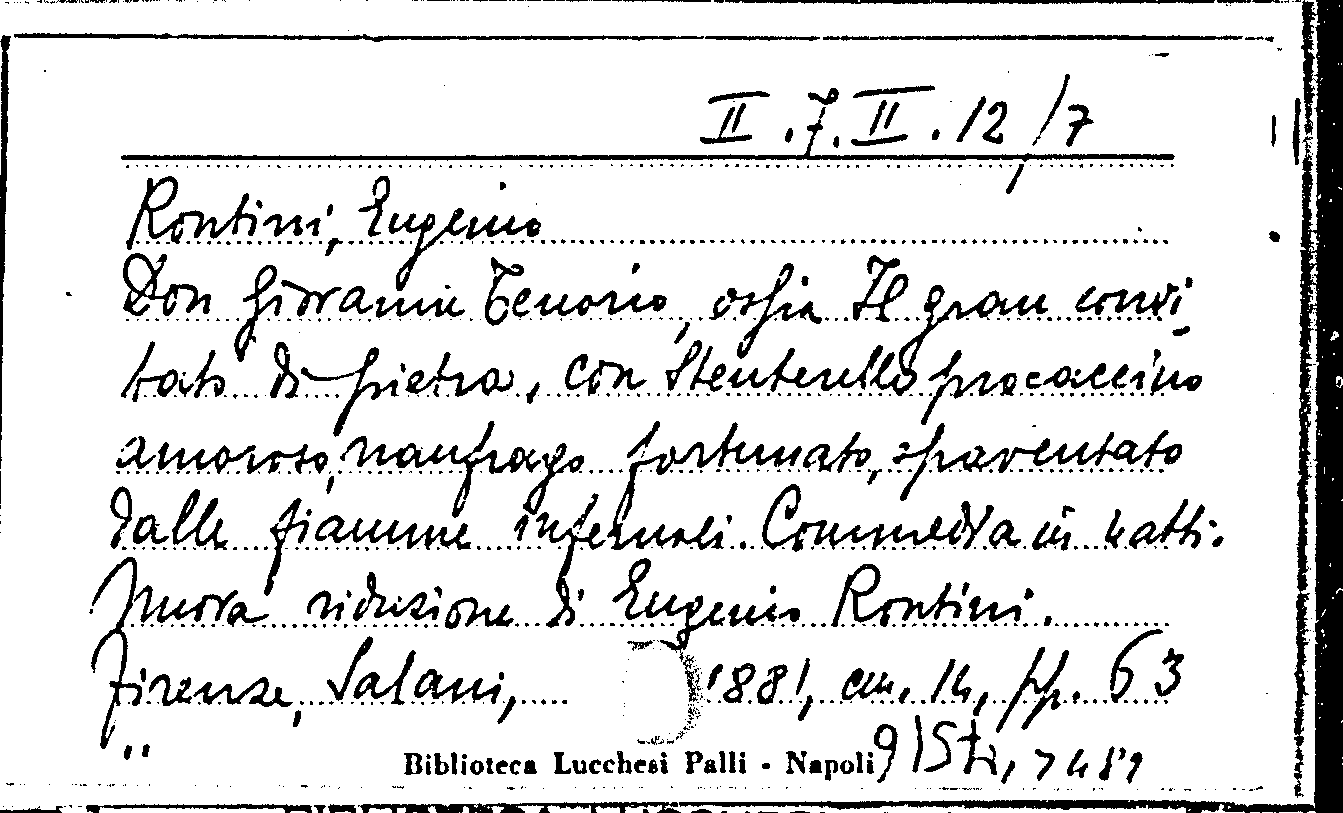 II.7.II.12,/7
Rontini, Eugenio
Don Giovanni Tenorio, ossia Il gran convi-
tato di pietra, con Stenterello procaccino
amoroso, naufrago fortunato, spaventato
dalle fiamme infernali. Commedia in 4 atti.
Nuova riduzione di Eugenio Rontini.
Firenze, Salani, 1881, cm. 14, pp. 63
Biblioteca Lucchesi Palli - Napoli